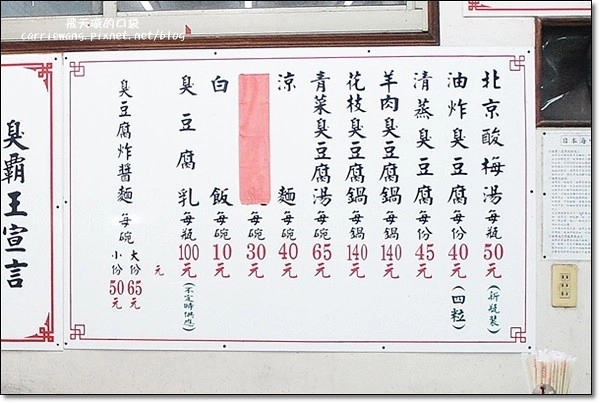 飛天璇的口袋
carriewang.pixnet.net/blog
北京酸梅湯 每瓶 50元 (新瓶裝)
油炸臭豆腐 每份 40元 (四粒)
清蒸臭豆腐 每份 45元
羊肉臭豆腐鍋 每鍋 140元
花枝臭豆腐鍋 每鍋 140元
青菜臭豆腐湯 每碗 65元
涼麵 每碗 40元
每碗 30元
白飯 每碗 10元
臭豆腐乳 每瓶 100元 (不定時供應)
元
臭豆腐炸醬麵 每碗 大份 65元 小份 50元
臭霸王宣言
日本海